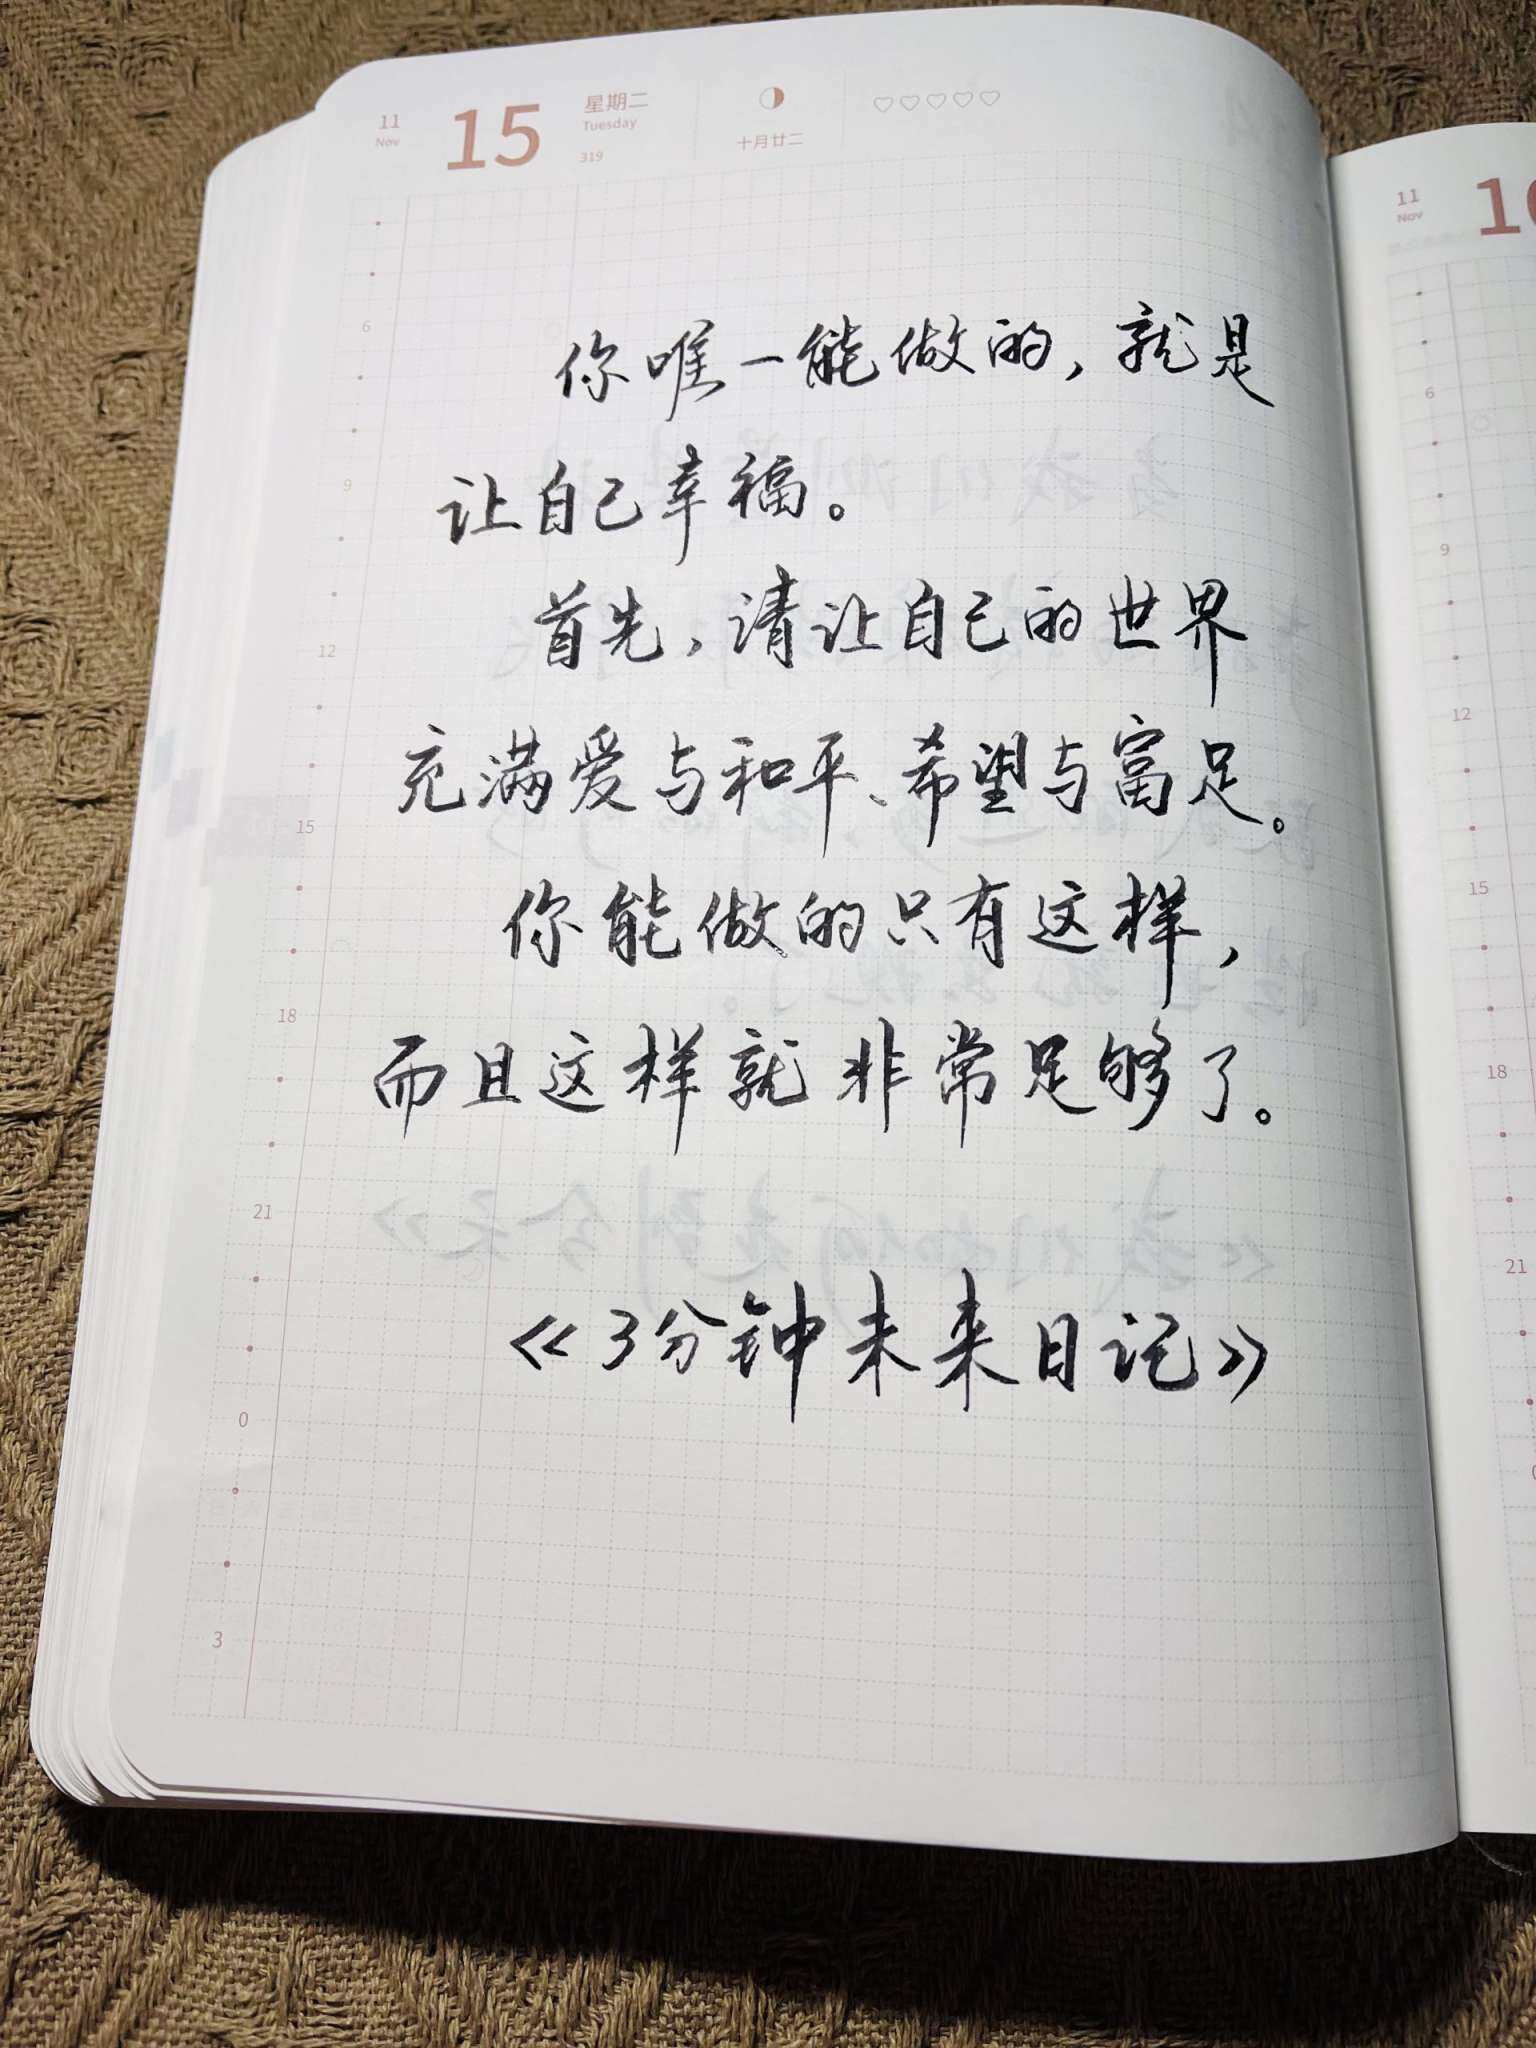 11
Nov
15
星期二
Tuesday
319
十月廿二
你唯一能做的，就是
让自己幸福。
首先，请让自己的世界
充满爱与和平、希望与富足。
你能做的只有这样，
而且这样就非常足够了。
《3分钟未来日记》
6
9
12
15
18
21
0
3
11
Nov
6
9
12
15
18
21